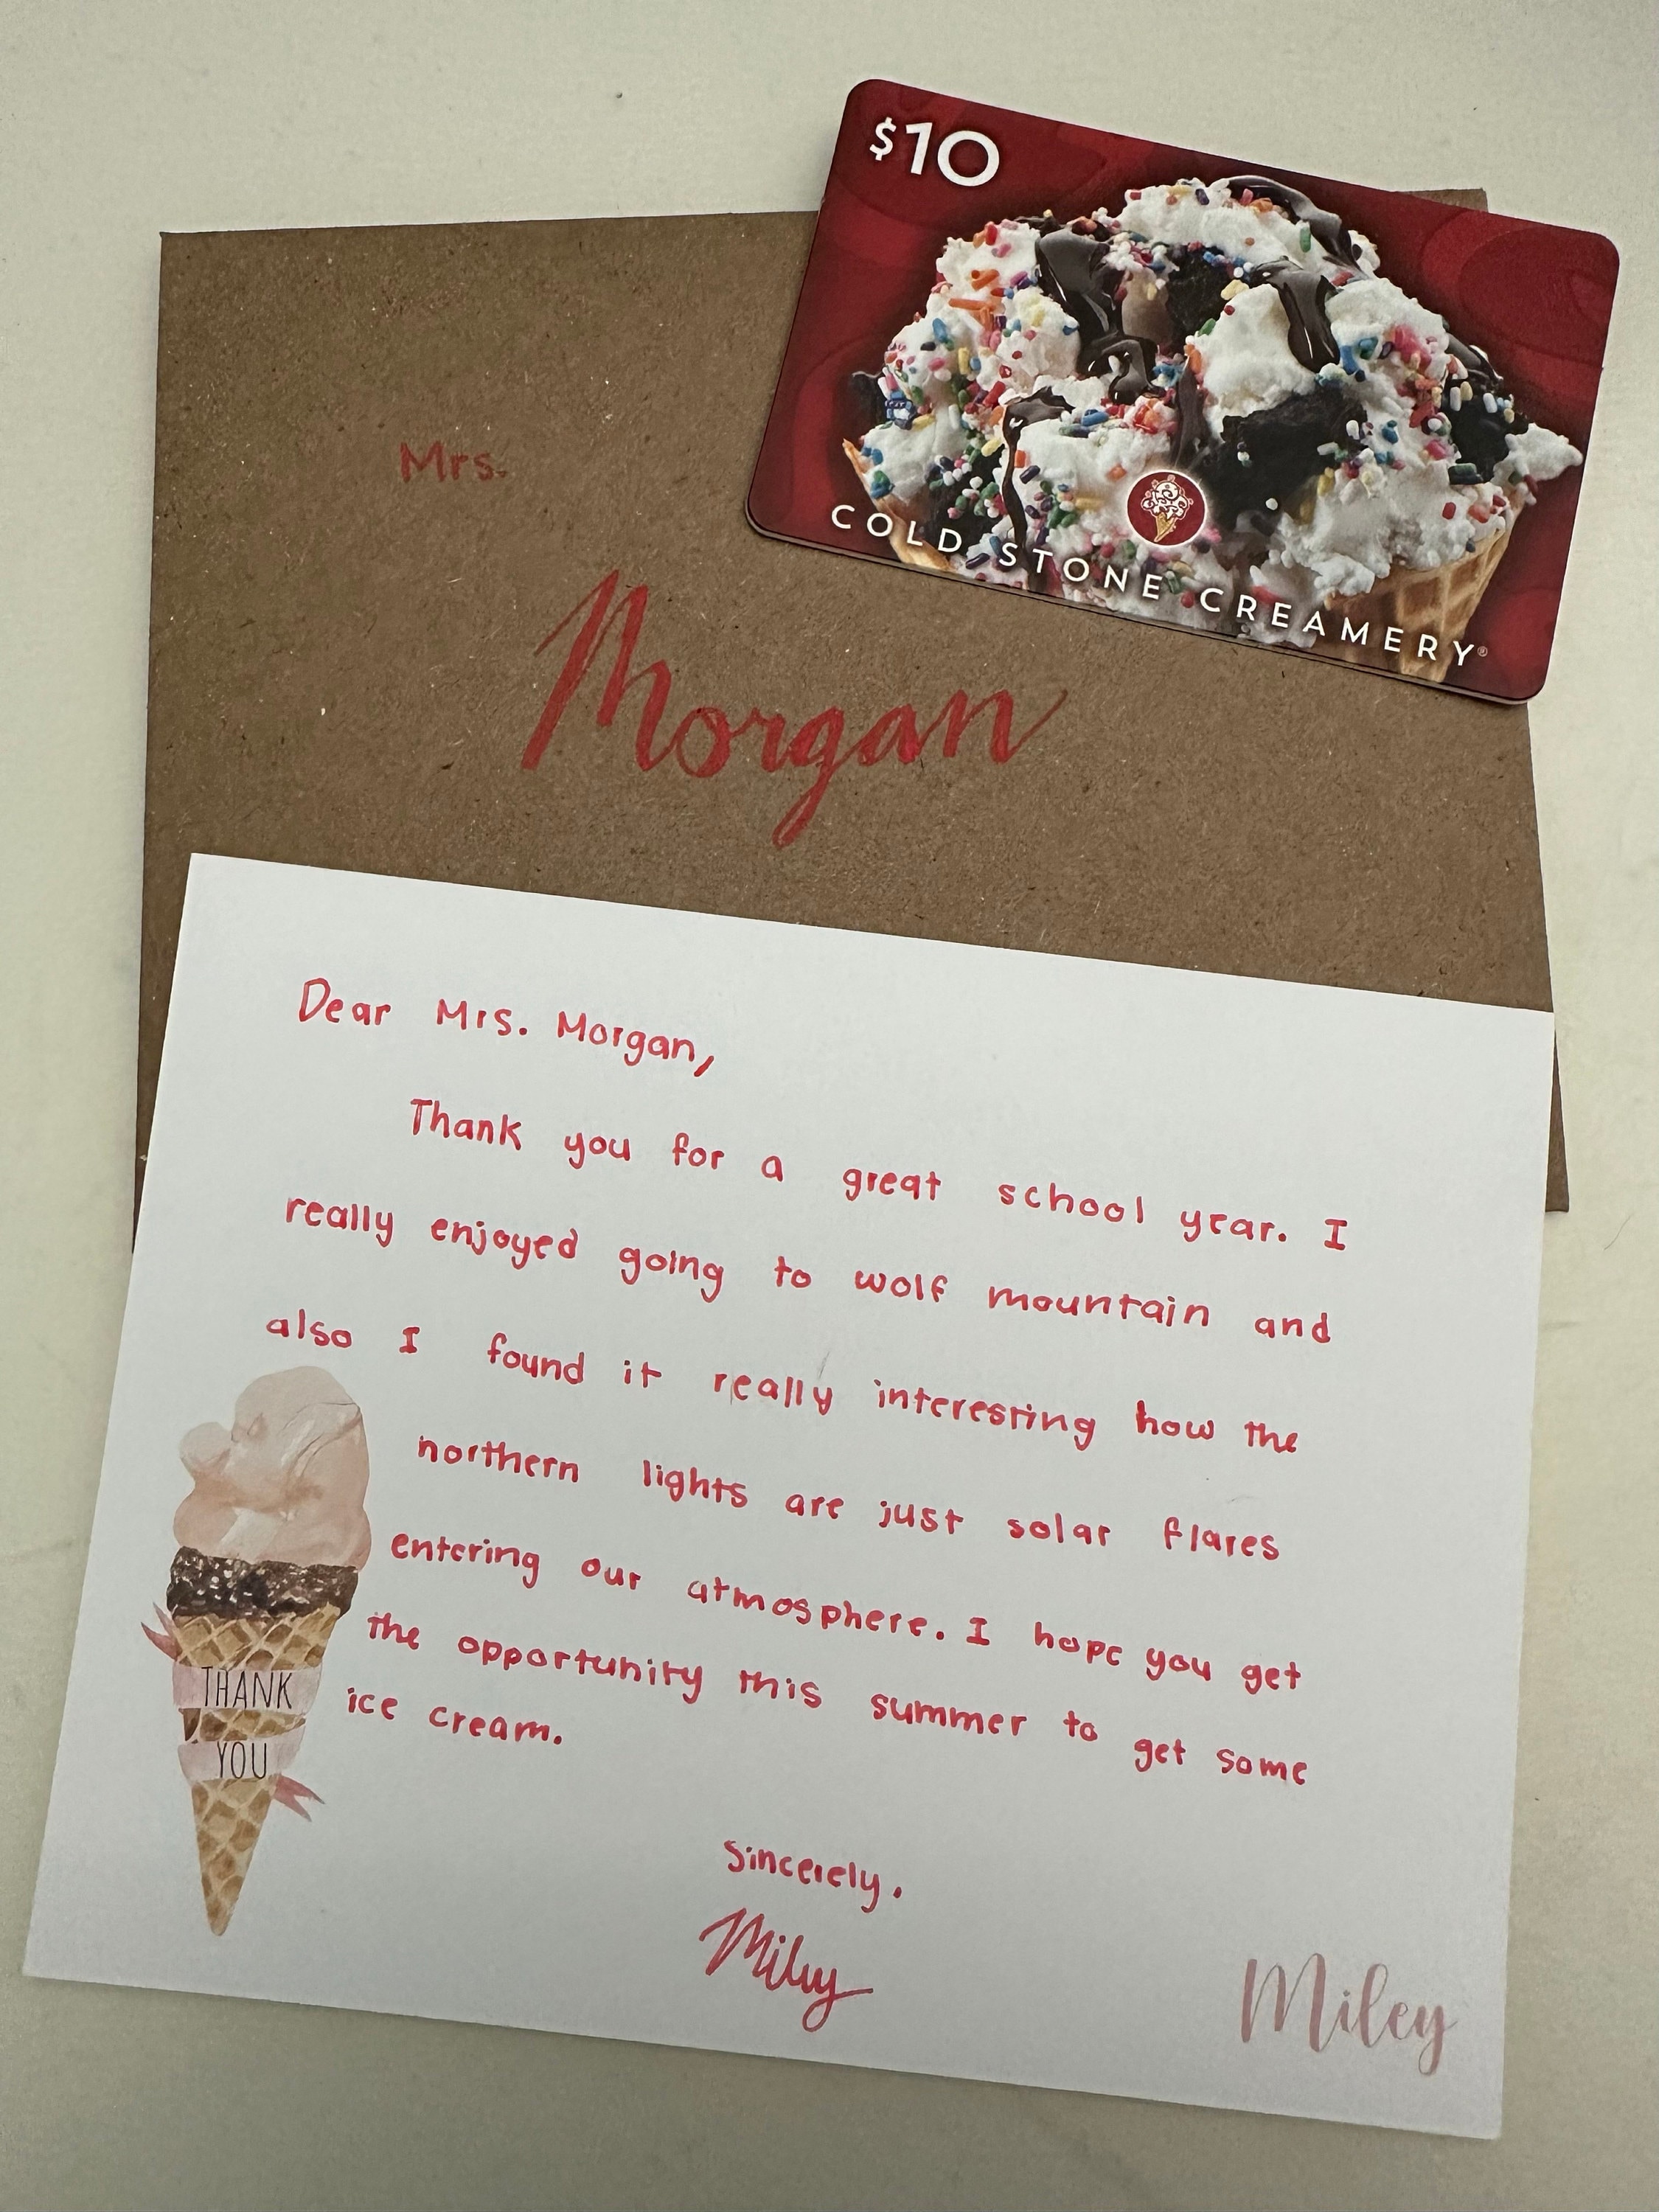 $10
COLD STONE CREAMERY®
Mrs.
Morgan
Dear Mrs. Morgan,
Thank you for a great school year. I
really enjoyed going to wolf mountain and
also I found it really interesting how the
northern lights are just solar flares
entering our atmosphere. I hope you get
the opportunity this summer to get some
ice cream.
THANK
YOU
Sincerely,
Miley
Miley